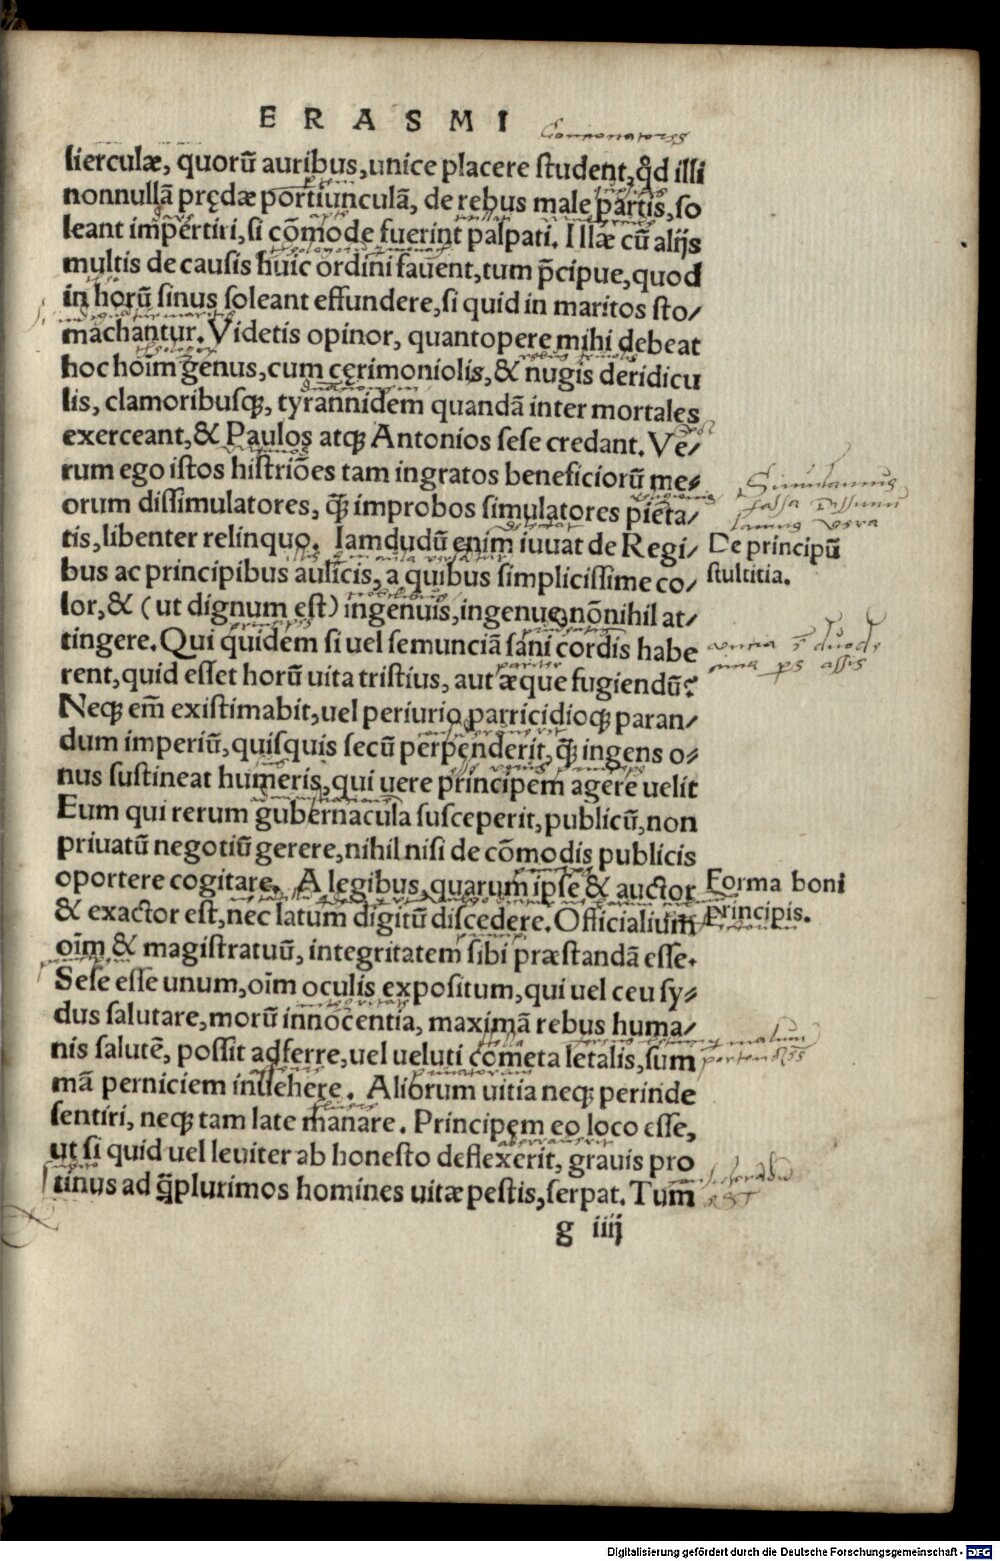 ERASMI
lierculæ, quorũ auribus, unice placere student, qđ illi
nonnullã prędæ portiunculã, de rebus male partis, so
leant impertiri, si cõmode fuerint palpati. Illæ cũ alijs
multis de causis huic ordini fauent, tum p̄cipue, quod
in horũ sinus soleant effundere, si quid in maritos sto/
machantur. Videtis opinor, quantopere mihi debeat
hoc hoĩm genus, cum cęrimoniolis, & nugis deridicu
lis, clamoribusqꝫ, tyrannidem quandã inter mortales
exerceant, & Paulos atqꝫ Antonios sese credant. Ve/
rum ego istos histriões tam ingratos beneficiorũ me/
orum dissimulatores, q̃ꝫ improbos simulatores pieta/
tis, libenter relinquo. Iamdudũ enim iuuat de Regi/
bus ac principibus aulicis, a quibus simplicissime co/
lor, & (ut dignum est) ingenuis, ingenue nõnihil at/
tingere. Qui quidem si uel semunciã sani cordis habe
rent, quid esset horũ uita tristius, aut æque fugiendũ?
Neqꝫ em̃ existimabit, uel periurio, parricidioqꝫ paran/
dum imperiũ, quisquis secũ perpenderit, q̃ꝫ ingens o/
nus sustineat humeris, qui uere principem agere uelit
Eum qui rerum gubernacula susceperit, publicũ, non
priuatũ negotiũ gerere, nihil nisi de cõmodis publicis
oportere cogitare. A legibus, quarum ipse & auctor
& exactor est, nec latum digitũ discedere. Officialium
oĩm & magistratuũ, integritatem sibi præstandã esse.
Sese esse unum, oĩm oculis expositum, qui uel ceu sy/
dus salutare, morũ innocentia, maximã rebus huma/
nis salutẽ, possit adferre, uel ueluti cometa letalis, sum
mã perniciem inuehere. Aliorum uitia neqꝫ perinde
sentiri, neqꝫ tam late manare. Principem eo loco esse,
ut si quid uel leuiter ab honesto deflexerit, grauis pro
tinus ad q̃plurimos homines uitæ pestis, serpat. Tum
g iiij
Simulamus
falsa Dissimu
lamus vera
De principũ
stultitia.
Forma boni
principis.
Digitalisierung gefördert durch die Deutsche Forschungsgemeinschaft - DFG